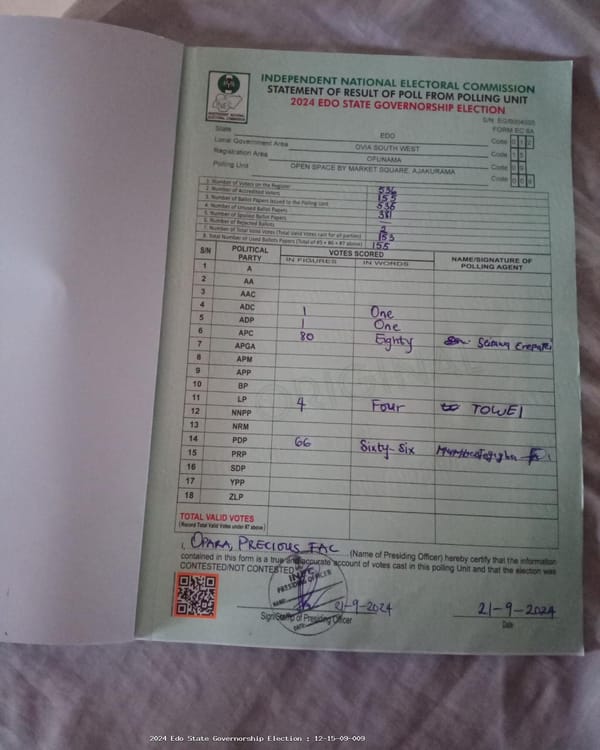 INDEPENDENT NATIONAL ELECTORAL COMMISSION
STATEMENT OF RESULT OF POLL FROM POLLING UNIT
2024 EDO STATE GOVERNORSHIP ELECTION
FORM EC 8A
State EDO Code 012
Local Government Area OVIA SOUTH WEST Code
Registration Area OFUNAMA Code
Polling Unit OPEN SPACE BY MARKET SQUARE, AJAKURAMA Code
1. Number of Voters on the Register 536
2. Number of Accredited Voters 155
3. Number of Ballot Papers Issued to the Polling Unit 536
4. Number of Unused Ballot Papers 381
5. Number of Spoiled Ballot Papers —
6. Number of Rejected Ballots 2
7. Number of Total Valid Votes (Total Valid Votes cast for all parties) 153
8. Total Number of Used Ballots Papers (Total of #5 + #6 + #7 above) 155
S/N POLITICAL PARTY VOTES SCORED NAME/SIGNATURE OF POLLING AGENT
IN FIGURES IN WORDS
1 A
2 AA
3 AAC
4 ADC 1 One
5 ADP 1 One
6 APC 80 Eighty
7 APGA
8 APM
9 APP
10 BP
11 LP 4 Four TOWEI
12 NNPP
13 NRM
14 PDP 66 Sixty-Six
15 PRP
16 SDP
17 YPP
18 ZLP
TOTAL VALID VOTES
(Record Total Valid Votes under #7 above)
I, OPARA, PRECIOUS IFAC (Name of Presiding Officer) hereby certify that the information
contained in this form is a true and accurate account of votes cast in this polling Unit and that the election was
CONTESTED/NOT CONTESTED
INEC
PRESIDING OFFICER
21-9-2024 21-9-2024
Sign/Stamp of Presiding Officer Date
2024 Edo State Governorship Election : 12-15-09-009